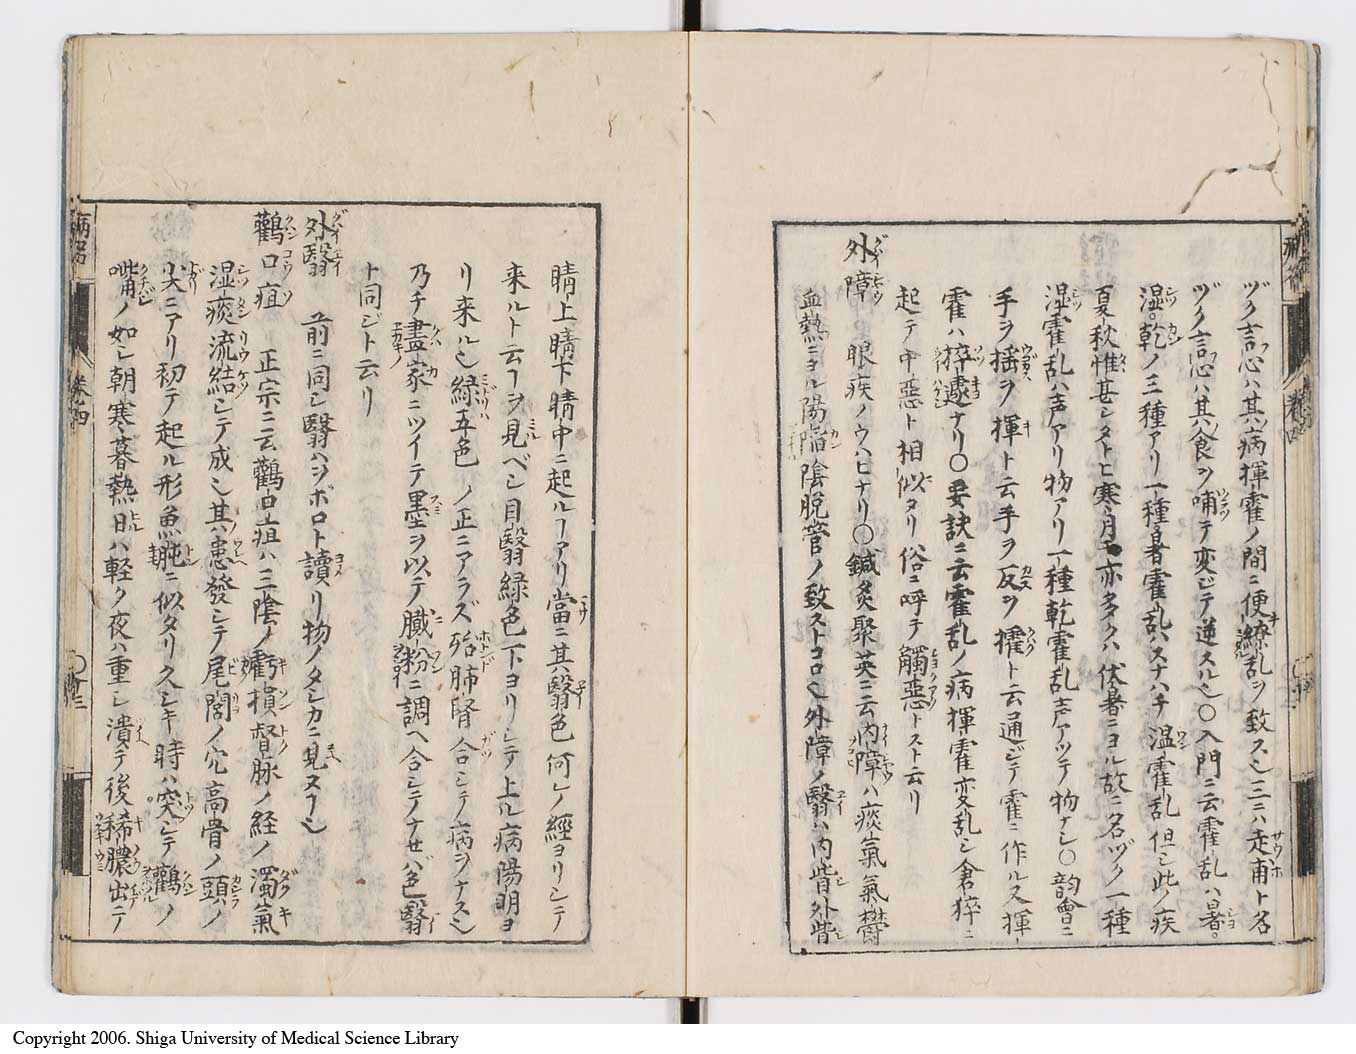 ヅク言心ハ其ノ病揮霍ノ間ニ便繚乱ヲ致ス也三ニハ走甫ト名
ヅク言心ハ其ノ食ヲ哺テ変ジテ逆スル也〇入門ニ云霍乱ハ暑。
湿。乾ノ三種アリ一種暑霍乱ハスナハチ温霍乱但シ此ノ疾
夏秋惟甚シタトヒ寒月モ亦多クハ伏暑ニヨル故ニ名ヅク一種
湿霍乱ハ声アリ物アリ一種乾霍乱声アツテ物ナシ〇韵會ニ
手ヲ揺ヲ揮ト云手ヲ反ヲ攉ト云通ジテ霍ニ作ル又揮
霍ハ猝遽ナリ〇要訣ニ云霍乱ノ病揮霍変乱シ倉猝ニ
起テ中惡ト相似タリ俗ニ呼テ觸惡トスト云リ
外障 眼疾ノウハヒナリ〇鍼灸聚英ニ云内障ハ痰氣氣欝
血熱ニヨル陽陷陰脱管ノ致ストコロ也外障ノ翳ハ内眥外眥
睛上睛下睛中ニ起ルヿアリ當ニ其翳色何レノ經ヨリシテ
来ルト云フヲ見ベシ目翳緑色下ヨリシテ上ル病陽明ヨ
リ来ル也緑五色ノ正ニアラズ殆肺腎合シテ病ヲナス也
乃チ畫家ニツイテ墨ヲ以テ膩粉ニ調ヘ合シテナセバ色翳
ト同ジト云リ
外翳 前ニ同シ翳ハジボロト讀リ物ノタシカニ見ヌヿ也
鸛口疽 正宗ニ云鸛口疽ハ三陰ノ虧損督脉ノ経ノ濁氣
湿痰流結シテ成シ其患發シテ尾閭ノ穴高骨ノ頭ノ
尖ニアリ初テ起ル形魚肫ニ似タリ久シキ時ハ突シテ鸛ノ
嘴ノ如シ朝寒暮熱日ハ軽ク夜ハ重シ潰テ後稀膿出テ
病名
卷四